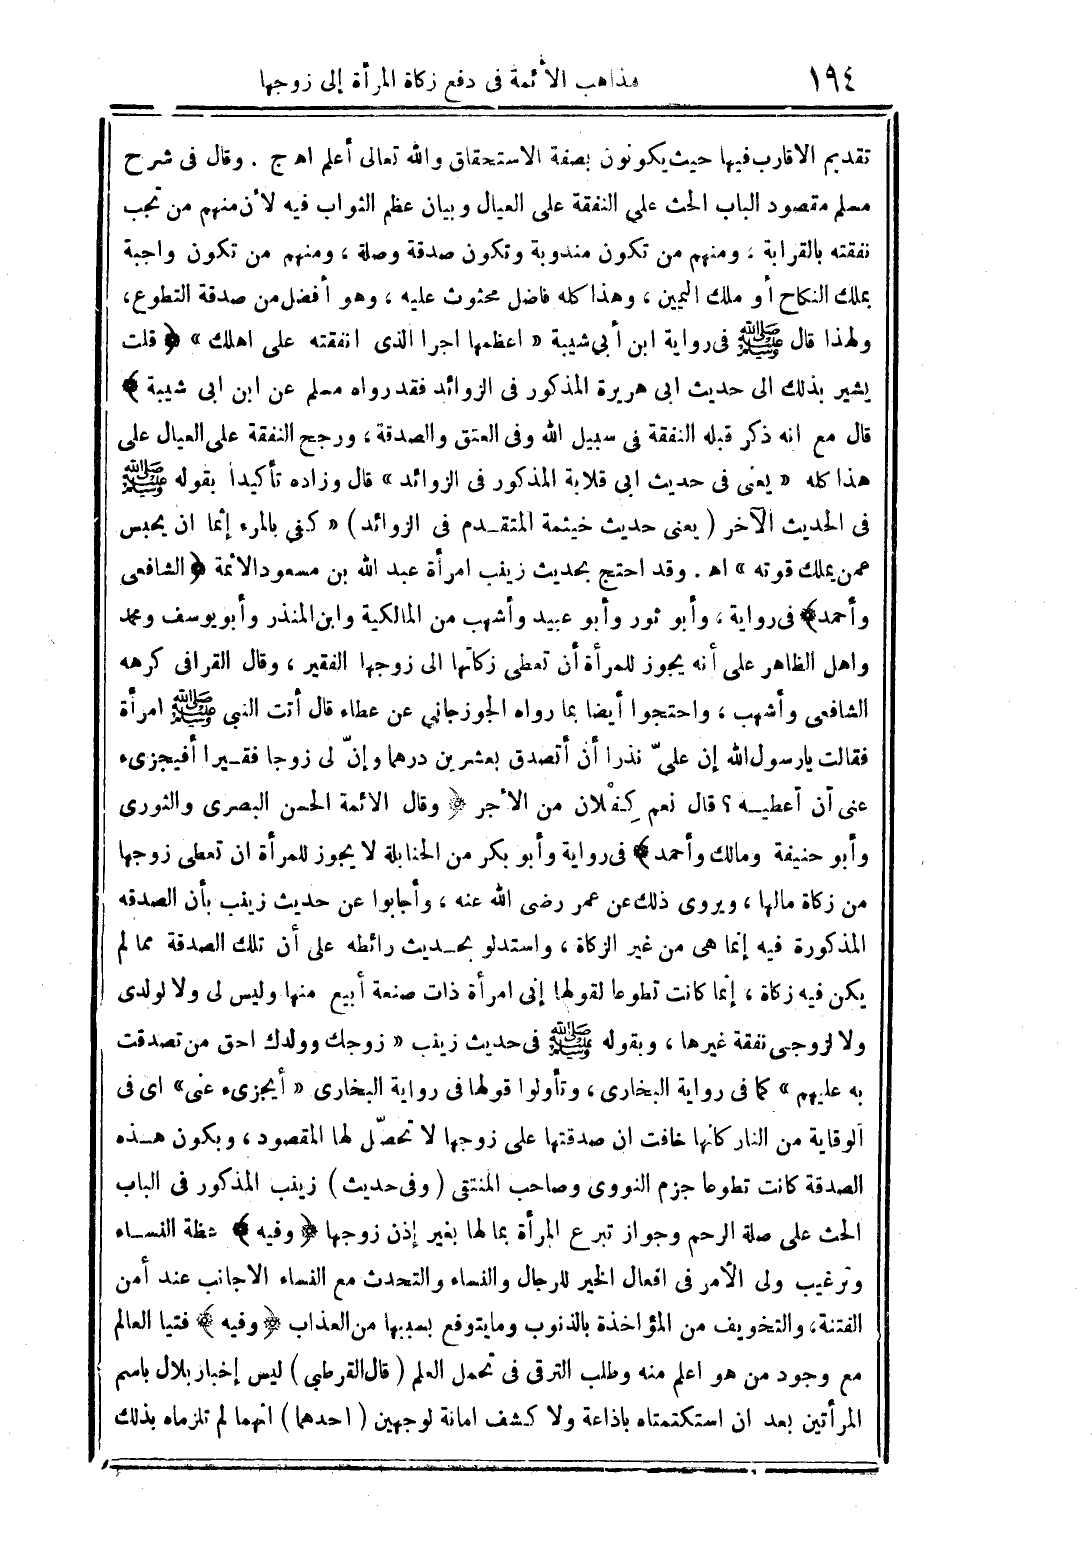 ١٩٤
مذاهب الأئمة فى دفع زكاة المرأة إلى زوجها
تقديم الاقارب فيها حيث يكونون بصفة الاستحقاق والله تعالى أعلم اهج . وقال فى شرح
مسلم مقصود الباب الحث على النفقة على العيال وبيان عظم الثواب فيه لأن منهم من تجب
نفقته بالقرابة ، ومنهم من تكون مندوبة وتكون صدقة وصلة ، ومنهم من تكون واجبة
بملك النكاح أو ملك اليمين ، وهذا كله فاضل محثوث عليه ، وهو أفضل من صدقة التطوع،
ولهذا قال ﷺ فى رواية ابن أبى شيبة « اعظمها اجرا الذى انفقته على اهلك » ﴿ قلت
يشير بذلك الى حديث ابى هريرة المذكور فى الزوائد فقد رواه مسلم عن ابن ابى شيبة ﴾
قال مع انه ذكر قبله النفقة فى سبيل الله وفى العتق والصدقة ، ورجح النفقة على العيال على
هذا كله « يعنى فى حديث ابى قلابة المذكور فى الزوائد » قال وزاده تأكيدا بقوله ﷺ
فى الحديث الآخر ( يعنى حديث خيثمة المتقدم فى الزوائد ) « كفى بالمرء إثما ان يحبس
عمن يملك قوته » اه . وقد احتج بحديث زينب امرأة عبد الله بن مسعود الائمة ﴿ الشافعى
وأحمد ﴾ فى رواية ، وأبو ثور وأبو عبيد وأشهب من المالكية وابن المنذر وأبو يوسف ومحمد
واهل الظاهر على أنه يجوز للمرأة أن تعطى زكاتها الى زوجها الفقير ، وقال القرافى كرهه
الشافعى وأشهب ، واحتجوا أيضا بما رواه الجوزجانى عن عطاء قال أتت النبى ﷺ امرأة
فقالت يارسول الله إن علىّ نذرا أن أتصدق بعشرين درهما وإنّ لى زوجا فقيرا أفيجزىء
عنى أن أعطيه ؟ قال نعم كِفْلان من الأجر ﴿ وقال الائمة الحسن البصرى والثورى
وأبو حنيفة ومالك وأحمد ﴾ فى رواية وأبو بكر من الحنابلة لا يجوز للمرأة ان تعطى زوجها
من زكاة مالها ، ويروى ذلك عن عمر رضى الله عنه ، وأجابوا عن حديث زينب بأن الصدقه
المذكورة فيه إنما هى من غير الزكاة ، واستدلو بحديث رائطه على أن تلك الصدقة مما لم
يكن فيه زكاة ، إنما كانت تطوعا لقولها إنى امرأة ذات صنعة أبيع منها وليس لى ولا لولدى
ولا لزوجى نفقة غيرها ، وبقوله ﷺ فى حديث زينب « زوجك وولدك احق من تصدقت
به عليهم » كما فى رواية البخارى ، وتأولوا قولها فى رواية البخارى « أيجزىء عنى » اى فى
الوقاية من النار كأنها خافت ان صدقتها على زوجها لا تحصّل لها المقصود ، وبكون هذه
الصدقة كانت تطوعا جزم النووى وصاحب المنتقى ( وفى حديث ) زينب المذكور فى الباب
الحث على صلة الرحم وجواز تبرع المرأة بمالها بغير إذن زوجها ﴿ وفيه ﴾ عظة النساء
وترغيب ولى الأمر فى افعال الخير للرجال والنساء والتحدث مع النساء الاجانب عند أمن
الفتنة، والتخويف من المؤاخذة بالذنوب وما يتوقع بسببها من العذاب ﴿ وفيه ﴾ فتيا العالم
مع وجود من هو اعلم منه وطلب الترقى فى تحمل العلم ( قال القرطبى ) ليس إخبار بلال باسم
المرأتين بعد ان استكتمتاه باذاعة ولا كشف امانة لوجهين ( احدهما ) انهما لم تلزماه بذلك